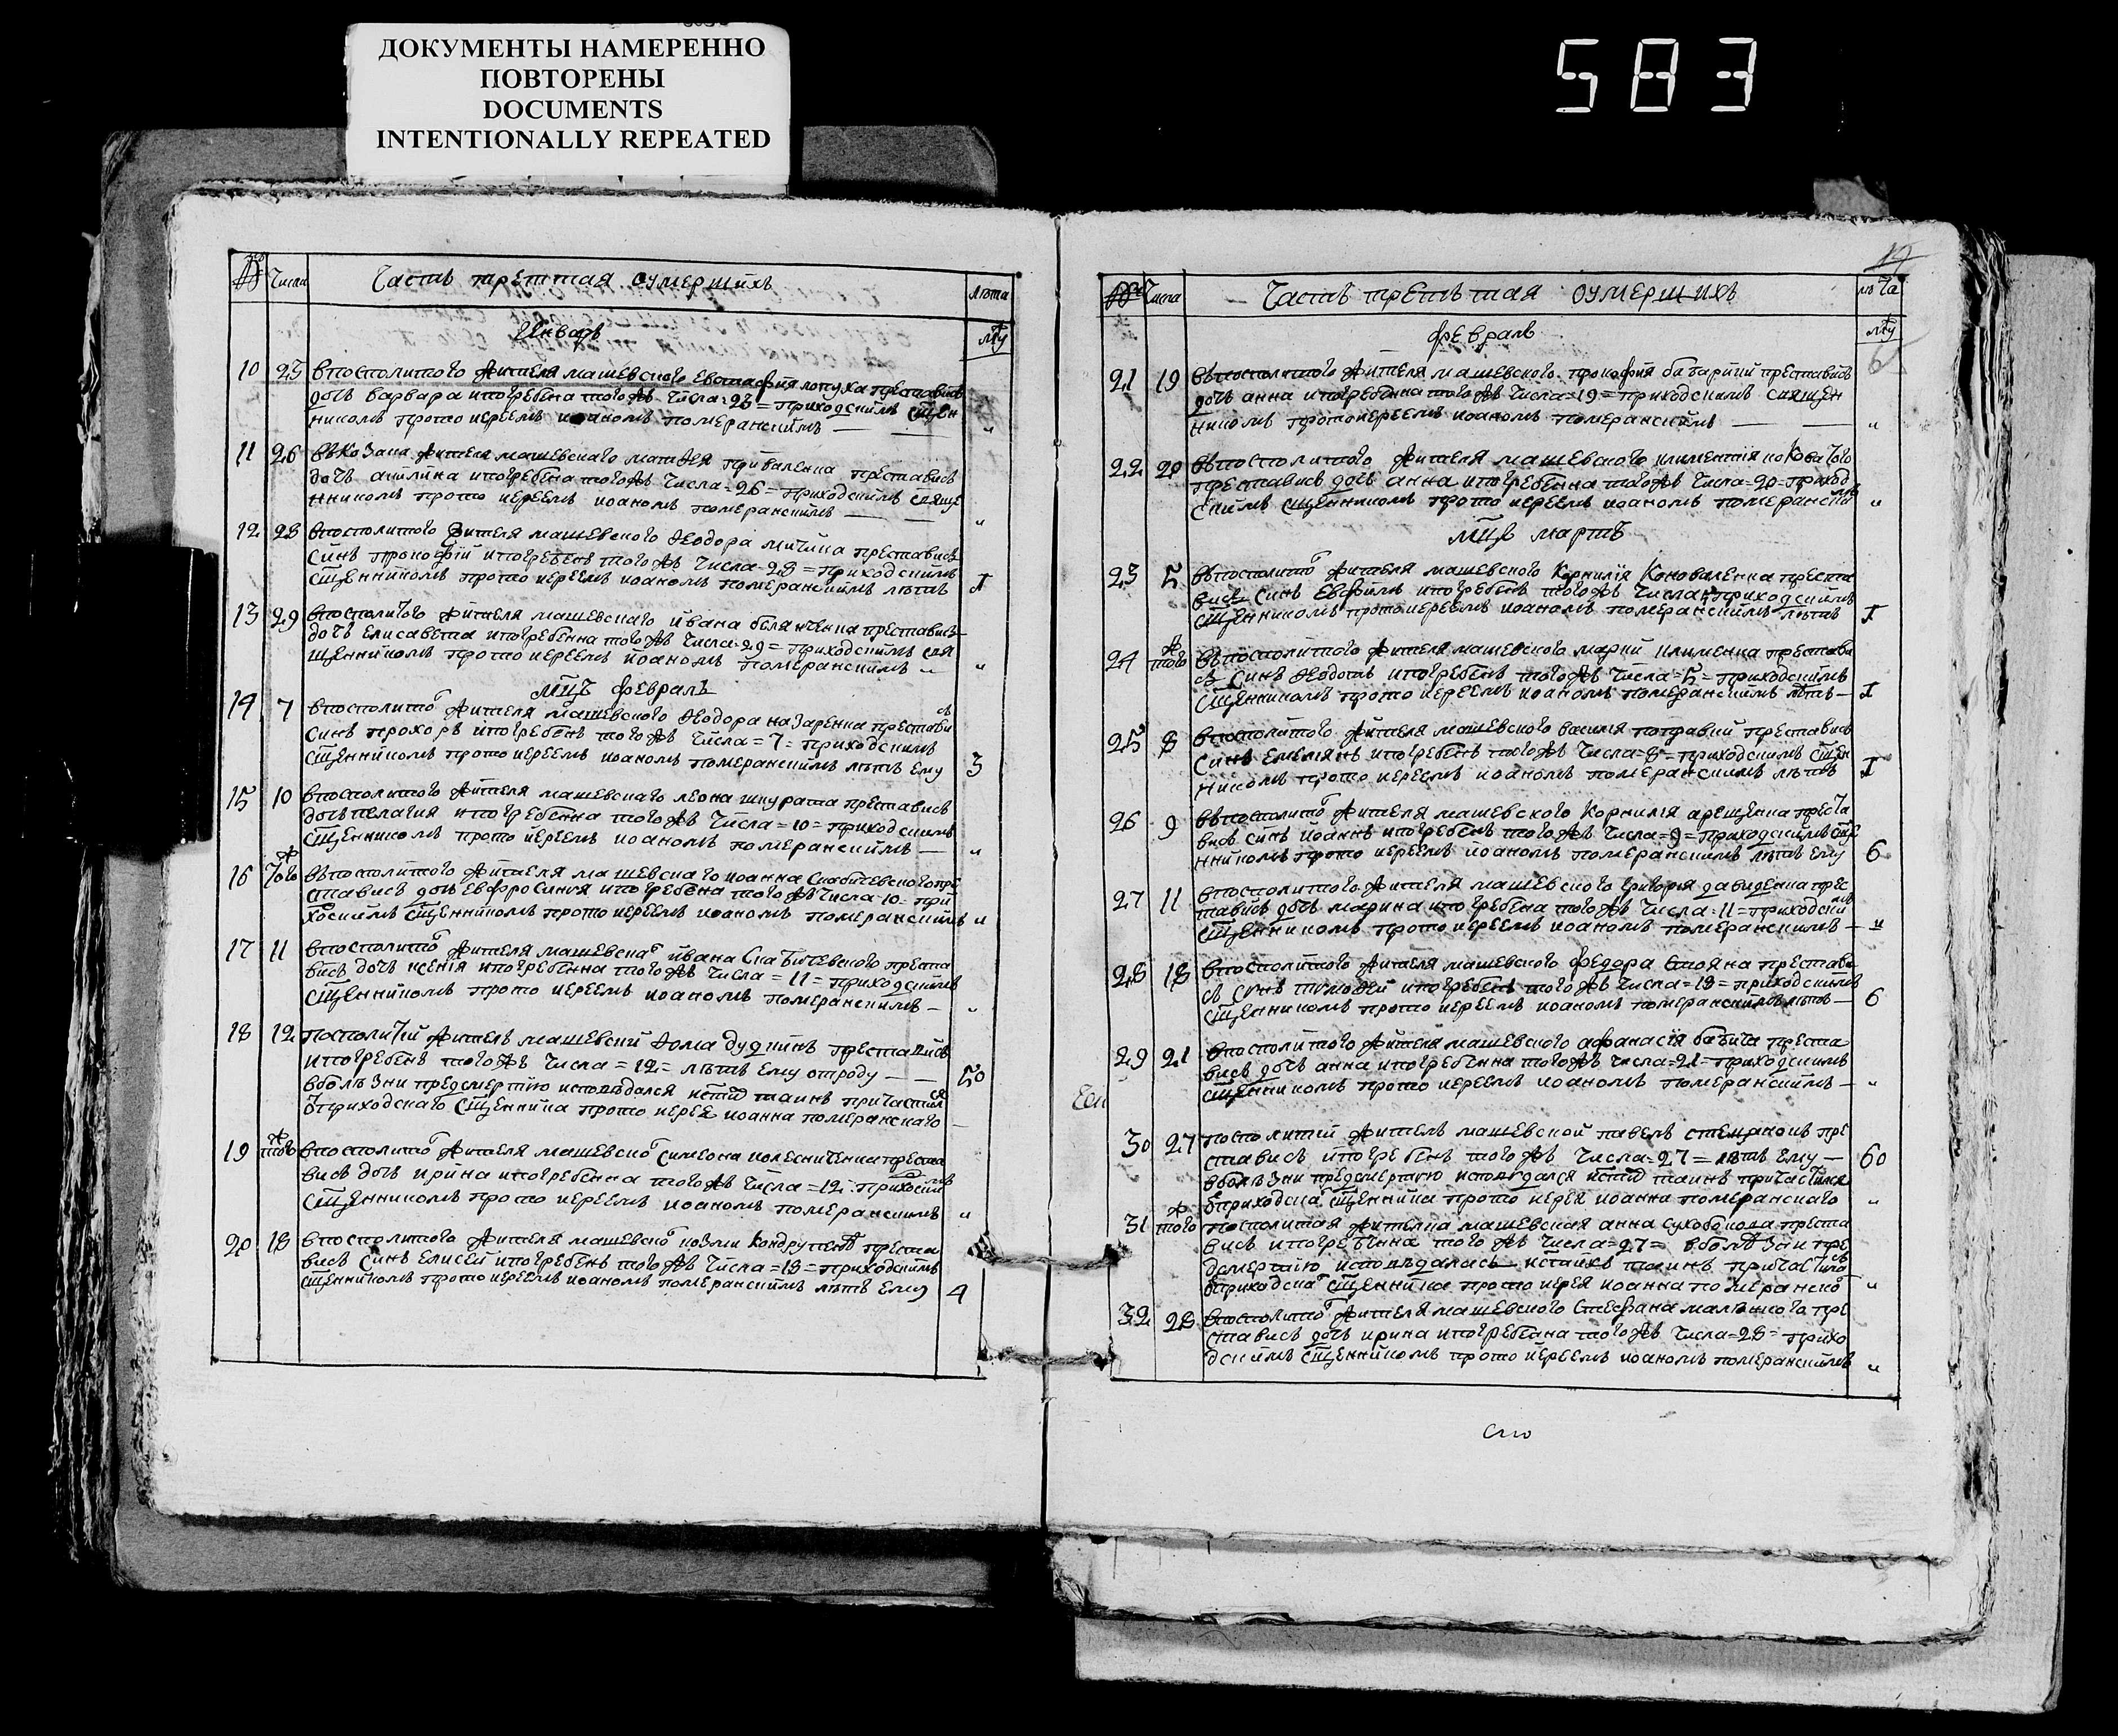 ДОКУМЕНТЫ НАМЕРЕННО
ПОВТОРЕНЫ
DOCUMENTS
INTENTIONALLY REPEATED
583
Числа Часть треттая оумершихъ лѣта
Январь
10 25 впосполитого жителя машевского Евстафия лопуха преставись
дочь варвара ипогребена того жъ числа = приходскимъ сщен
никомъ прото иереемъ иоаномъ померанскимъ "
11 26 въкозака жителя машевского матѳея приваленка преставись
дочь акилина ипогребена того жъ числа = 26 = приходскимъ свяще
нникомъ прото иереемъ иоаномъ померанскимъ "
12 28 впосполитого жителя машевского ѳеодора преставись
синъ прокофій ипогребенъ того жъ числа = 28 = приходскимъ
сщенникомъ прото иереемъ иоаномъ померанскимъ лѣтъ I
13 29 впосполитого жителя машевскаго ивана преставись
дочь елисавета ипогребенна того жъ числа = 29 = приходскимъ свя
щенникомъ прото иереемъ иоаномъ померанскимъ "
мцъ февраль
14 7 впосполито жителя машевского ѳеодора назаренка престави сь
синъ прохоръ ипогребенъ того жъ числа = 7 = приходскимъ
сщенникомъ прото иереемъ иоаномъ померанскимъ лѣтъ ему 3
15 10 впосполитого жителя машевскаго леона шкурата преставись
дочь пелагия ипогребенна того жъ числа = 10 = приходскимъ
сщенникомъ прото иереемъ иоаномъ померанскимъ "
16 того ж въпосполитого жителя машевскаго иоанна пре
ставись дочь евфросиния ипогребена того жъ числа 10 = при
хоскимъ сщенникомъ прото иереемъ иоаномъ померанскимъ "
17 11 впосполито жителя машевска ивана преста
вись дочь ксенія ипогребенна того жъ числа = 11 = приходскимъ
сщенникомъ прото иереемъ иоаномъ померанскимъ "
18 12 посполитий житель машевский ѳома дудкинъ преставись
ипогребенъ того жъ числа = 12 = лѣтъ ему отроду 50
вболѣзни предсмертию исповѣдался таинъ причастился
отприходскаго сщенника прото иерея иоанна померанскаго
19 того ж впосполито жителя машевско симеона колесниченка преста
вись дочь ирина ипогребенна того жъ числа = 12 = приходским
сщенникомъ прото иереемъ иоаномъ померанскимъ "
20 18 впосполитого жителя машевско козми преста
вись синъ елисей ипогребенъ того жъ числа = 18 = приходскимъ
сщенникомъ прото иереемъ иоаномъ померанскимъ лѣтъ ему 4
Числа Часть третьтая оумершихъ лѣта
февраль
21 19 въпосполитого жителя машевского прокофия преставись
дочь анна ипогребенна того жъ числа = 19 = приходскимъ священ
никомъ протоиереемъ иоаномъ померанскимъ "
22 20 въпосполитого жителя машевского климентія
преставись дочь анна ипогребенна того жъ числа = 20 = приход
скимъ сщенникомъ прото иереемъ иоаномъ померанскимъ "
мцъ мартъ
23 5 въпосполито жителя машевского корнилія коноваленка преста
вись синъ евфимъ ипогребенъ того жъ числа приходскимъ
сщенникомъ протоиереемъ иоаномъ померанскимъ лѣтъ I
24 того ж въпосполитого жителя машевского клименка престави
сь синъ ѳеодотъ ипогребенъ того жъ числа = 5 = приходскимъ
сщенникомъ прото иереемъ иоаномъ померанскимъ лѣтъ I
25 8 впосполитого жителя машевского василия преставись
синъ емелянъ ипогребенъ того жъ числа = 8 = приходскимъ сщен
никомъ прото иереемъ иоаномъ померанскимъ лѣтъ I
26 9 въпосполито жителя машевского корнилія преста
вись синъ иоаннъ ипогребенъ того жъ числа = 9 = приходскимъ сще
нникомъ прото иереемъ иоаномъ померанскимъ лѣтъ ему 6
27 11 впосполитого жителя машевского григорія давиденка прес
тавись дочь марина ипогребена того жъ числа = 11 = приходским
сщенникомъ прото иереемъ иоаномъ померанскимъ "
28 18 впосполитого жителя машевского федора стояна престави
сь синъ тимоѳей ипогребенъ того жъ числа = 18 = приходскимъ
сщенникомъ прото иереемъ иоаномъ померанскимъ лѣтъ 6
29 21 впосполитого жителя машевского афанасія бабича преста
вись дочь анна ипогребенна того жъ числа = 21 = приходскимъ
сщенникомъ прото иереемъ иоаномъ померанскимъ "
30 27 посполитий житель машевской павелъ пре
ставись ипогребенъ того жъ числа = 27 = лѣтъ ему 60
вболѣзни предсмертию исповѣдался таинъ причастился
отприходска сщенника прото иерея иоанна померанскаго "
31 того ж посполитая жителка машевская анна преста
вись ипогребѣнна того жъ числа = 27 = вболѣзни пре
дсмертию исповѣдалась таинъ причастила сь
отприходска сщенника прото иерея иоанна померанско "
32 28 впосполито жителя машевского стефана пре
ставись дочь ирина ипогребенна того жъ числа = 28 = прихо
дскимъ сщенникомъ прото иереемъ иоаномъ померанскимъ "